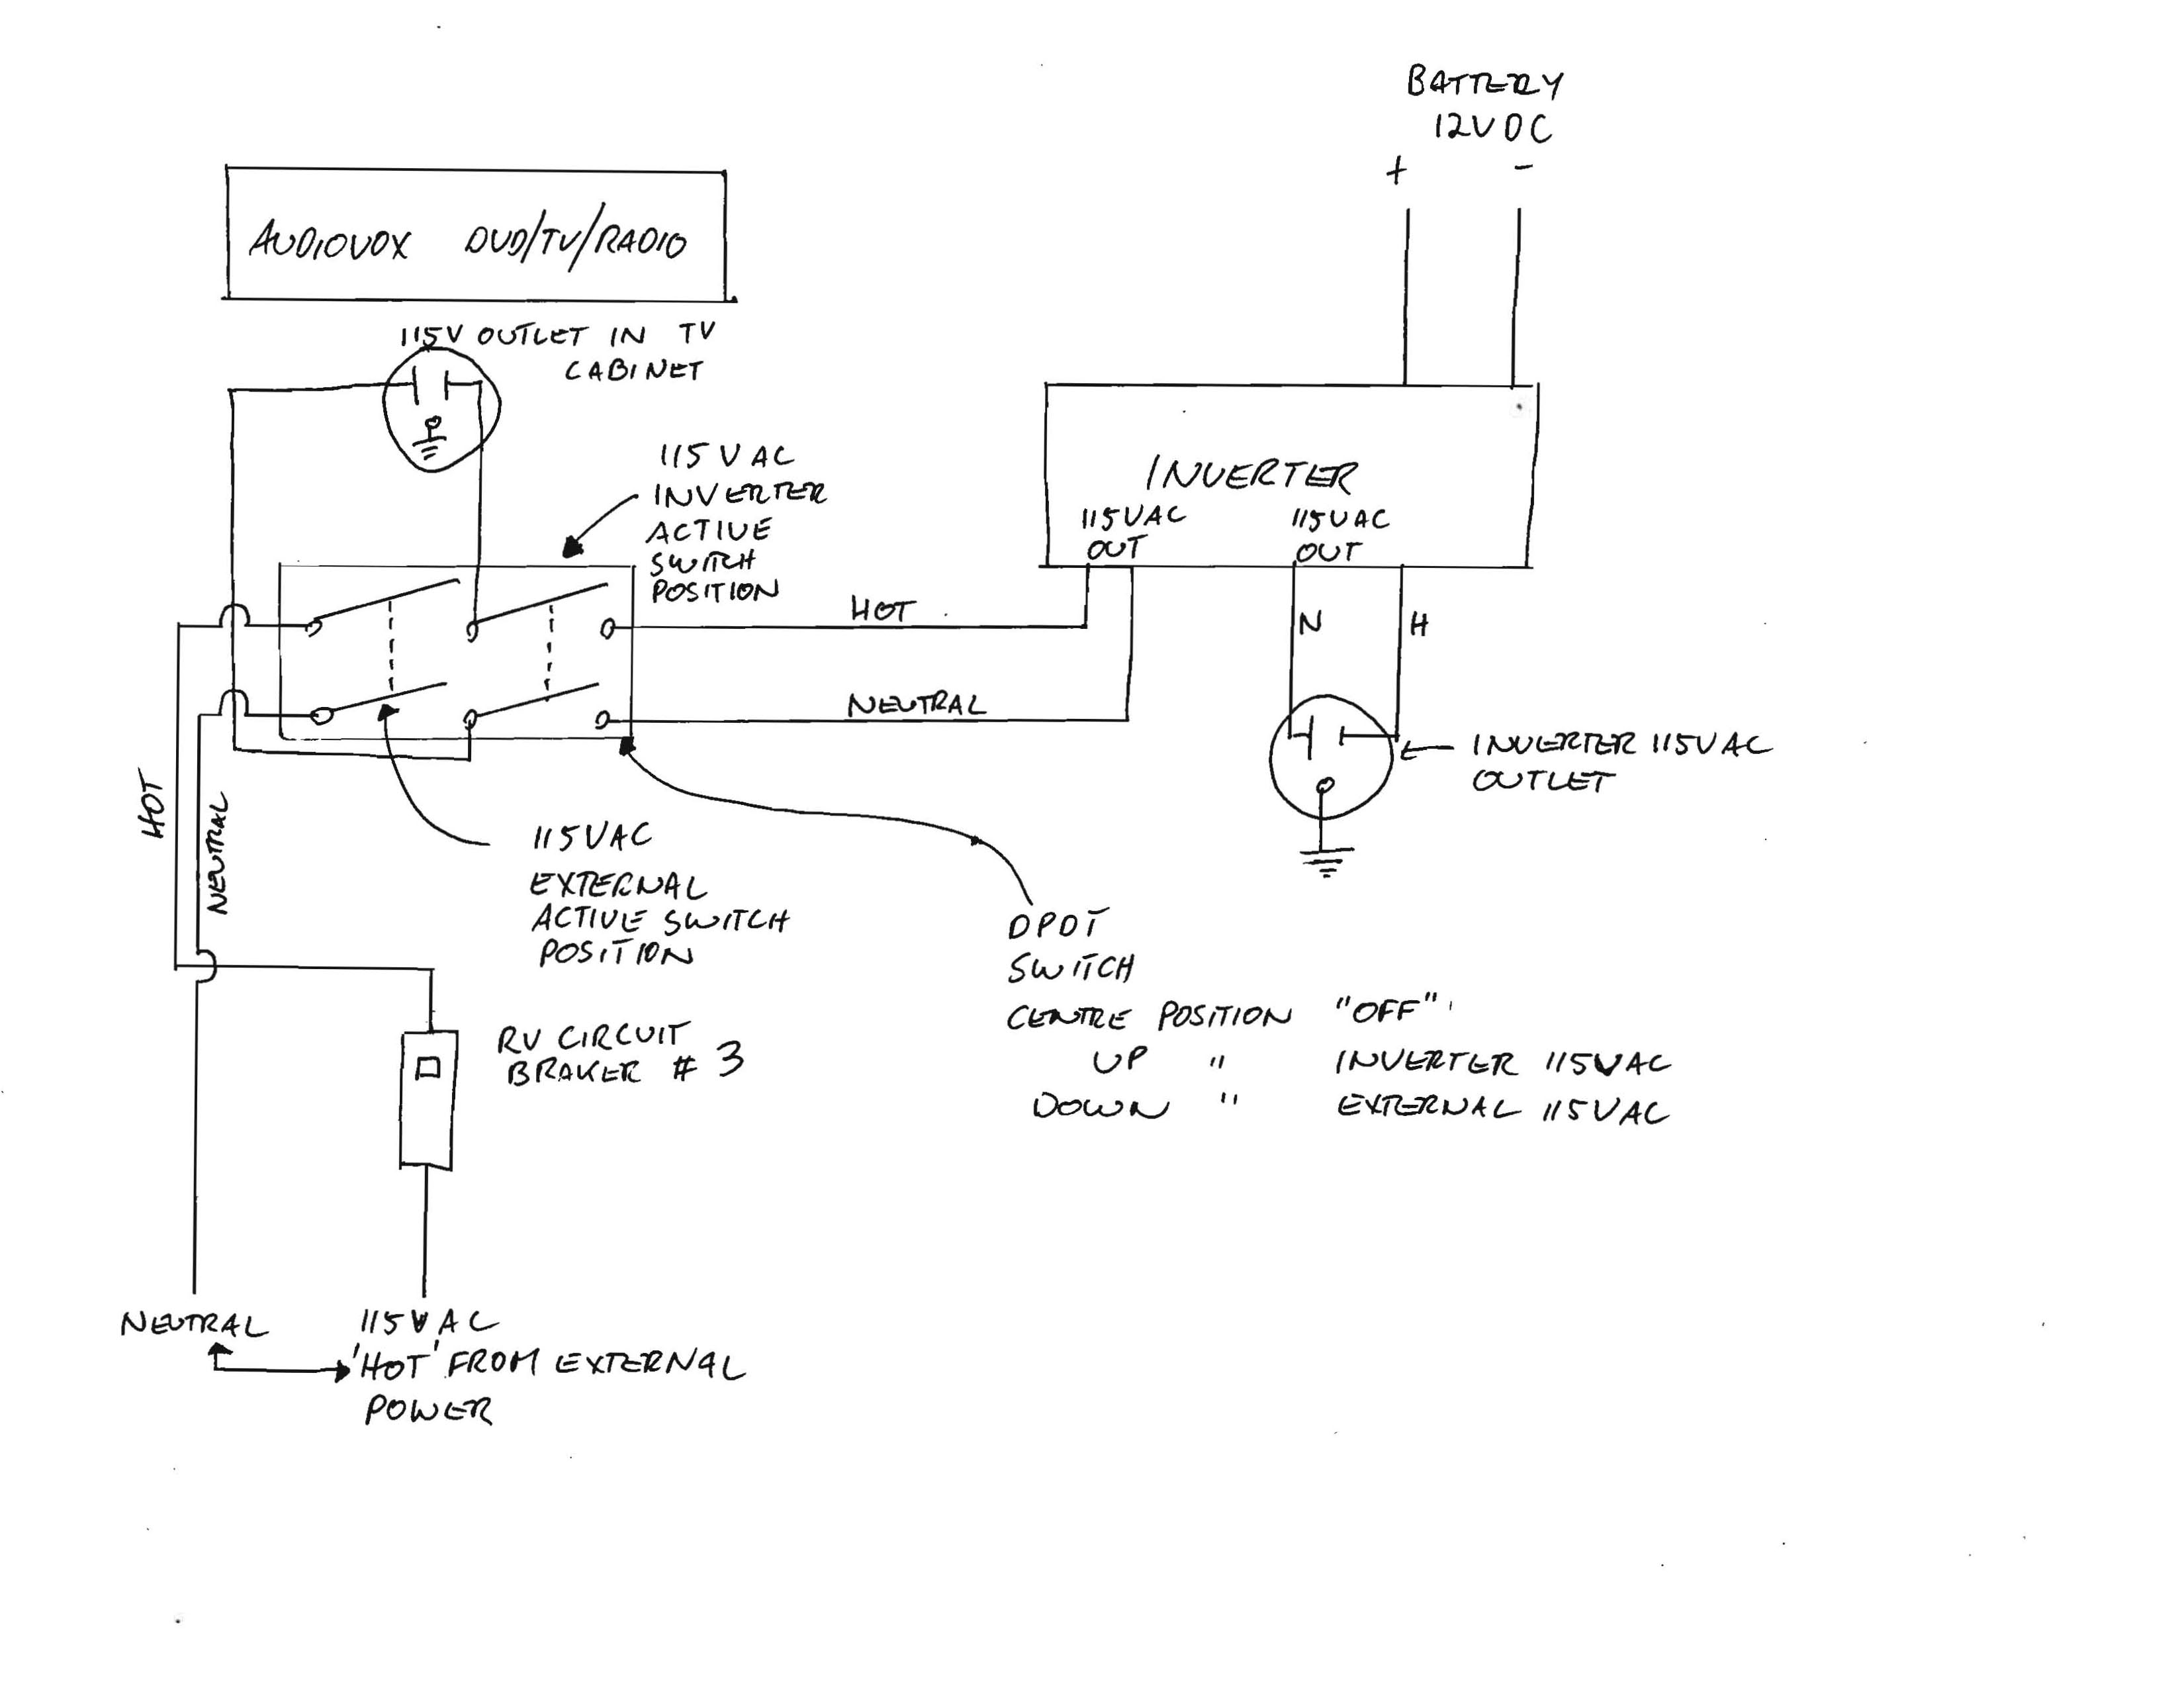 BATTERY
12VDC
+ -
AUDIOVOX DVD/TV/RADIO
115V OUTLET IN TV
CABINET
115VAC
INVERTER
ACTIVE
SWITCH
POSITION
INVERTER
115VAC
OUT
115VAC
OUT
HOT
NEUTRAL
N
H
INVERTER 115VAC
OUTLET
HOT
NEUTRAL
115VAC
EXTERNAL
ACTIVE SWITCH
POSITION
DPDT
SWITCH
CENTRE POSITION "OFF"
UP " INVERTER 115VAC
DOWN " EXTERNAL 115VAC
RV CIRCUIT
BRAKER # 3
NEUTRAL
115VAC
'HOT' FROM EXTERNAL
POWER